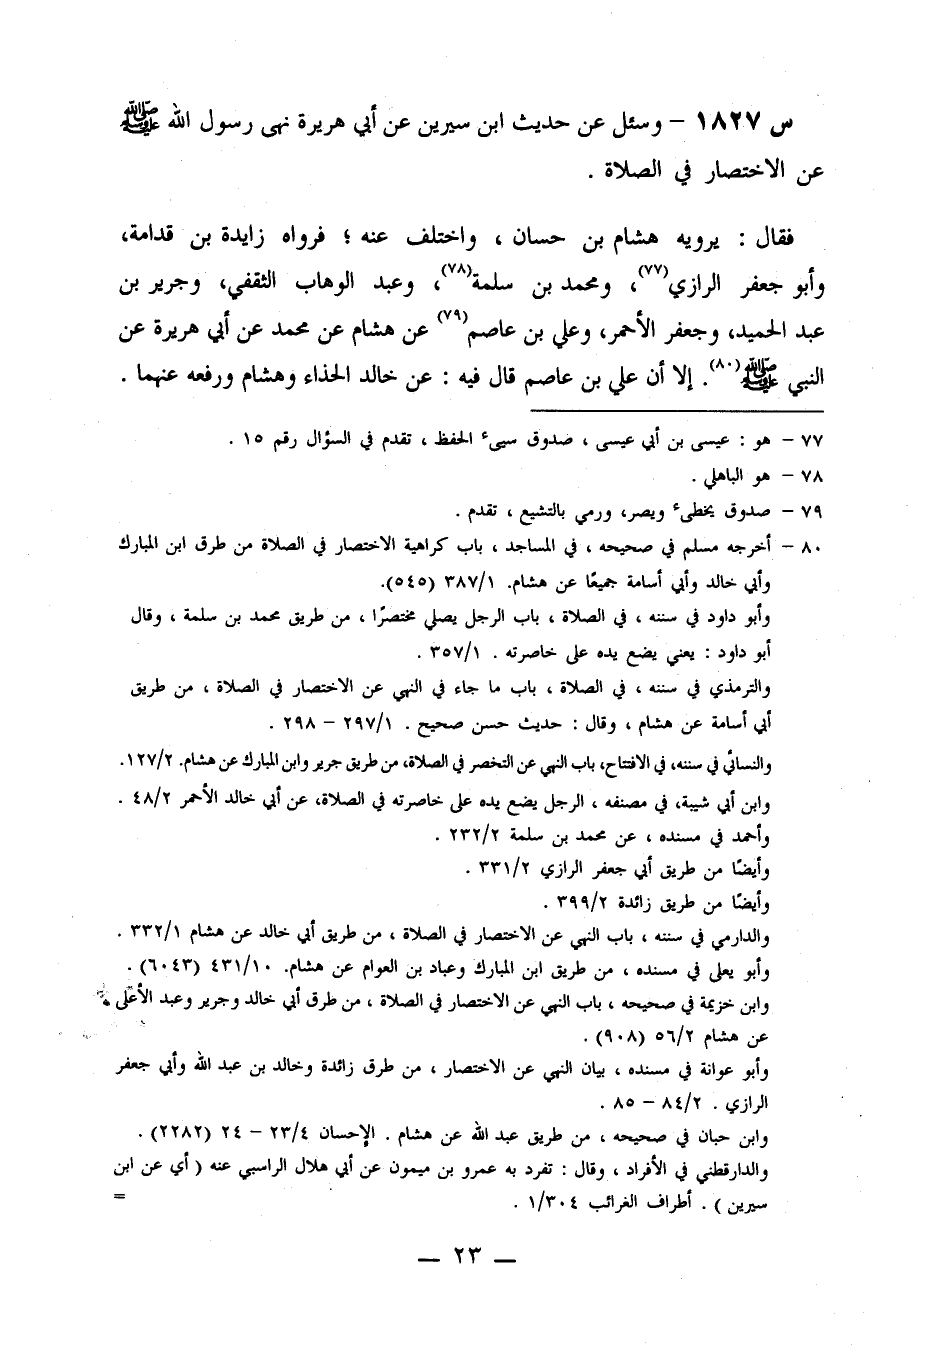 س ١٨٢٧ – وسئل عن حديث ابن سيرين عن أبي هريرة نهى رسول الله ﷺ
عن الاختصار في الصلاة .
فقال : يرويه هشام بن حسان ، واختلف عنه ؛ فرواه زايدة بن قدامة،
وأبو جعفر الرازي(٧٧)، ومحمد بن سلمة(٧٨)، وعبد الوهاب الثقفي، وجرير بن
عبد الحميد، وجعفر الأحمر، وعلي بن عاصم(٧٩) عن هشام عن محمد عن أبي هريرة عن
النبي ﷺ(٨٠). إلا أن علي بن عاصم قال فيه : عن خالد الحذاء وهشام ورفعه عنهما .
٧٧ – هو : عيسى بن أبي عيسى ، صدوق سيىء الحفظ ، تقدم في السؤال رقم ١٥ .
٧٨ – هو الباهلي .
٧٩ – صدوق يخطىء ويصر، ورمي بالتشيع ، تقدم .
٨٠ – أخرجه مسلم في صحيحه ، في المساجد ، باب كراهية الاختصار في الصلاة من طرق ابن المبارك
وأبي خالد وأبي أسامة جميعًا عن هشام. ٣٨٧/١ (٥٤٥).
وأبو داود في سننه ، في الصلاة ، باب الرجل يصلي مختصرًا ، من طريق محمد بن سلمة ، وقال
أبو داود : يعني يضع يده على خاصرته . ٣٥٧/١ .
والترمذي في سننه ، في الصلاة ، باب ما جاء في النهي عن الاختصار في الصلاة ، من طريق
أبي أسامة عن هشام ، وقال : حديث حسن صحيح . ٢٩٧/١ – ٢٩٨ .
والنسائي في سننه، في الافتتاح، باب النهي عن التخصر في الصلاة، من طريق جرير وابن المبارك عن هشام. ١٢٧/٢.
وابن أبي شيبة، في مصنفه ، الرجل يضع يده على خاصرته في الصلاة، عن أبي خالد الأحمر ٤٨/٢ .
وأحمد في مسنده ، عن محمد بن سلمة ٢٣٢/٢ .
وأيضًا من طريق أبي جعفر الرازي ٣٣١/٢ .
وأيضًا من طريق زائدة ٣٩٩/٢ .
والدارمي في سننه ، باب النهي عن الاختصار في الصلاة ، من طريق أبي خالد عن هشام ٣٣٢/١ .
وأبو يعلى في مسنده ، من طريق ابن المبارك وعباد بن العوام عن هشام. ٤٣١/١٠ (٦٠٤٣) .
وابن خزيمة في صحيحه ، باب النهي عن الاختصار في الصلاة ، من طرق أبي خالد وجرير وعبد الأعلى
عن هشام ٥٦/٢ (٩٠٨) .
وأبو عوانة في مسنده ، بيان النهي عن الاختصار ، من طرق زائدة وخالد بن عبد الله وأبي جعفر
الرازي . ٨٤/٢ – ٨٥ .
وابن حبان في صحيحه ، من طريق عبد الله عن هشام . الإحسان ٢٣/٤ – ٢٤ (٢٢٨٢) .
والدارقطني في الأفراد ، وقال : تفرد به عمرو بن ميمون عن أبي هلال الراسبي عنه ( أي عن ابن
سيرين ) . أطراف الغرائب ١/٣٠٤ .
=
— ٢٣ —